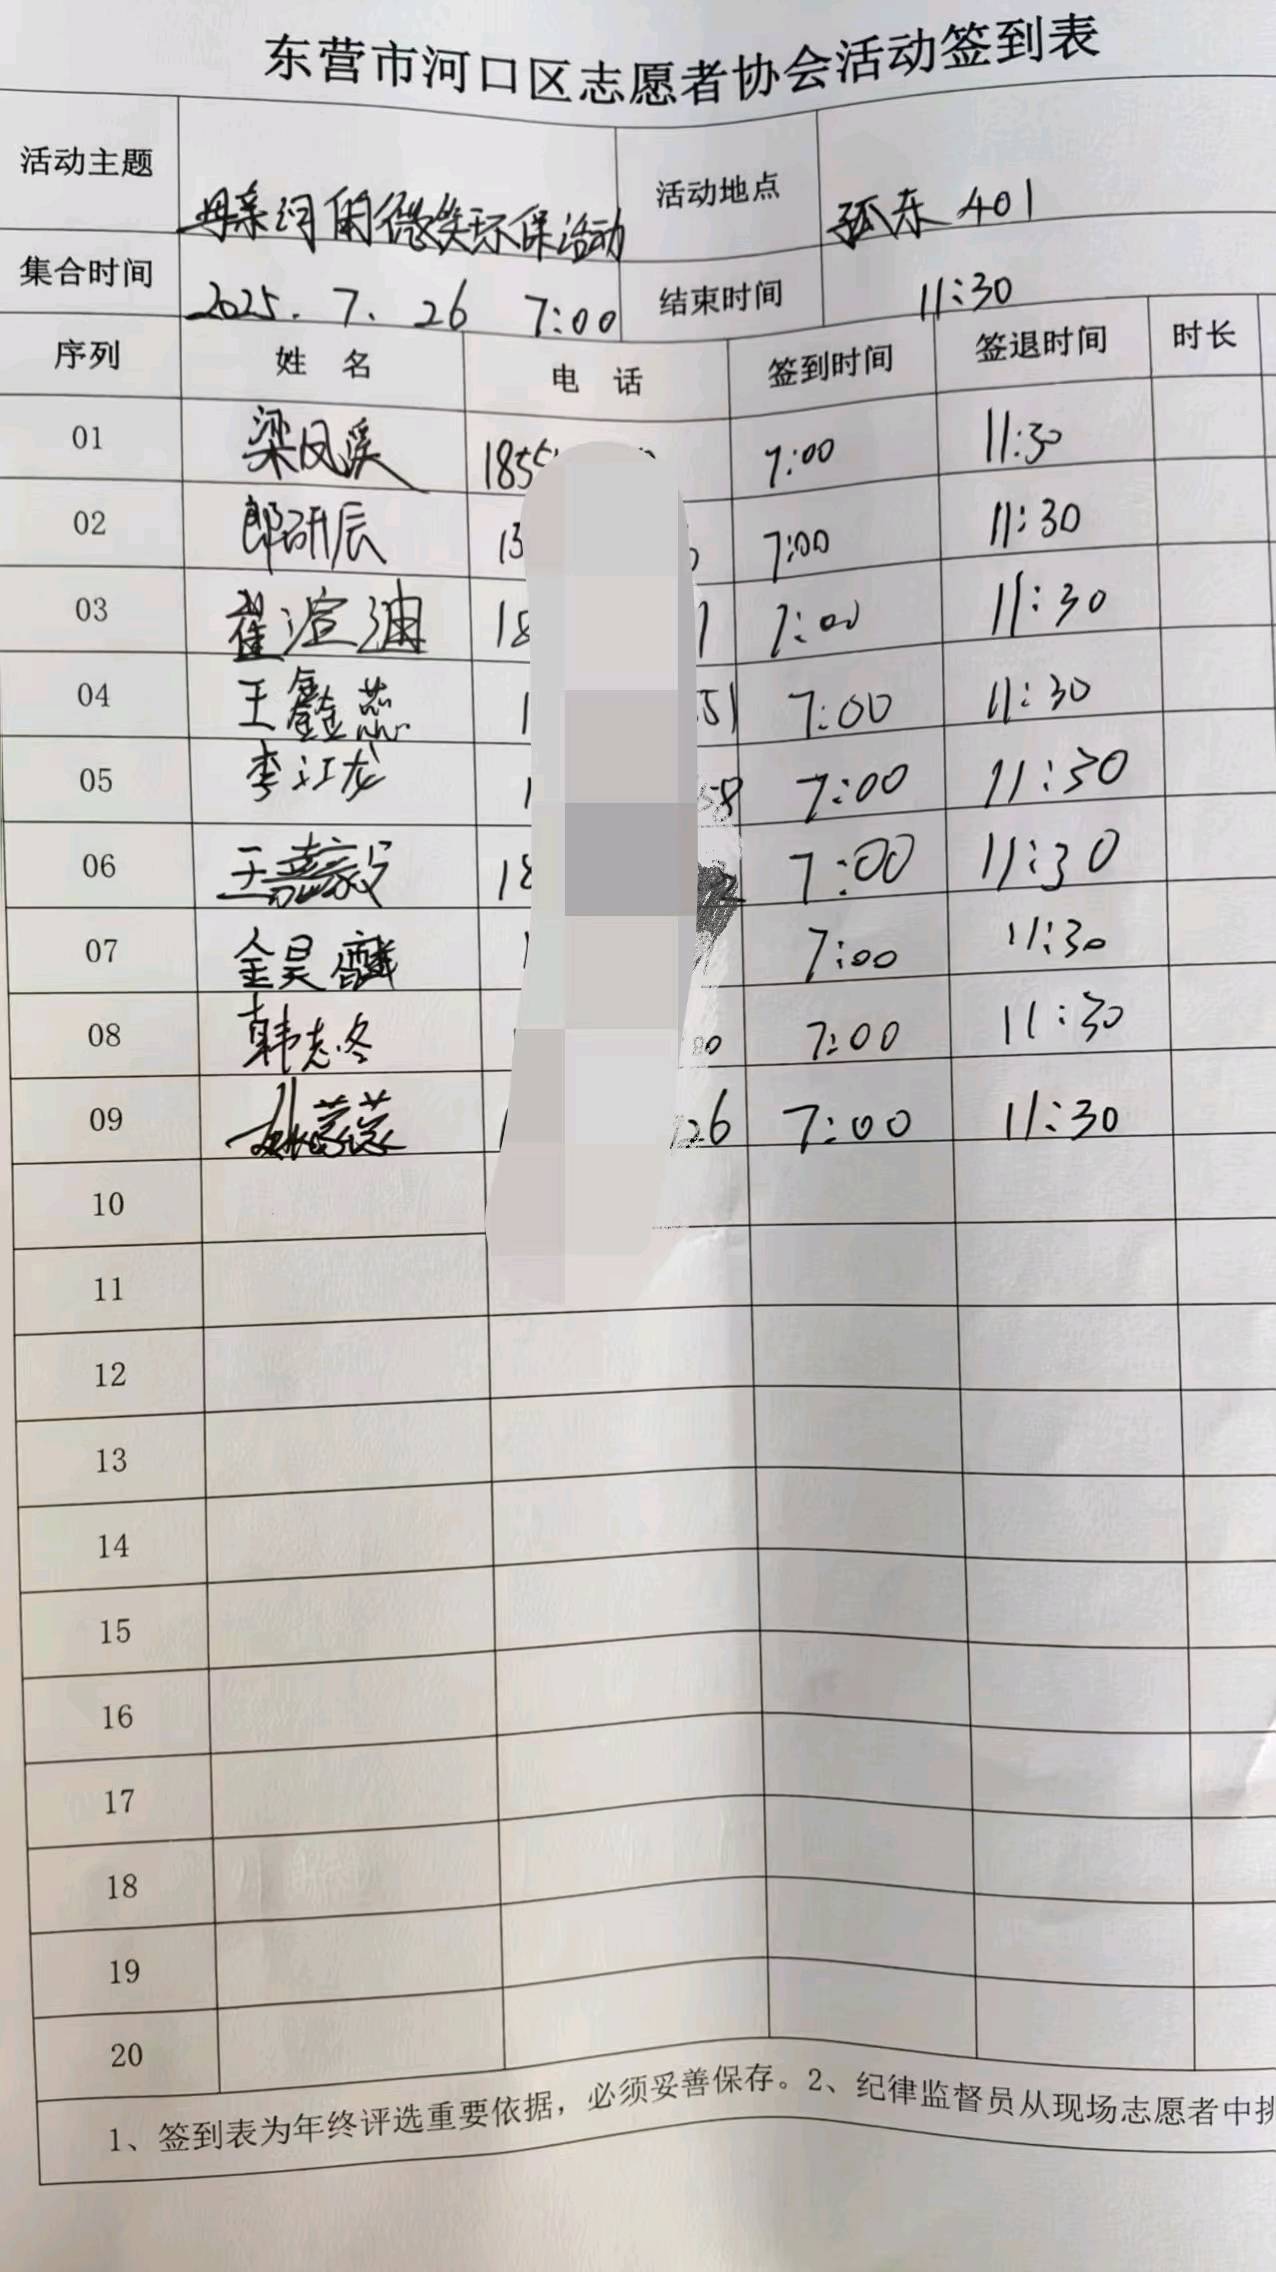 东营市河口区志愿者协会活动签到表
活动主题 母亲河 微笑环保活动 活动地点 孤东 401
集合时间 2025. 7. 26 7:00 结束时间 11:30
序列 姓名 电话 签到时间 签退时间 时长
01 梁凤溪 185 7:00 11:30
02 郎研辰 13 7:00 11:30
03 崔渲 18 7:00 11:30
04 王鑫蕊 1 51 7:00 11:30
05 李江龙 1 58 7:00 11:30
06 王嘉毅 18 2 7:00 11:30
07 金昊 7:00 11:30
08 韩志冬 80 7:00 11:30
09 26 7:00 11:30
10
11
12
13
14
15
16
17
18
19
20
1、签到表为年终评选重要依据，必须妥善保存。2、纪律监督员从现场志愿者中挑